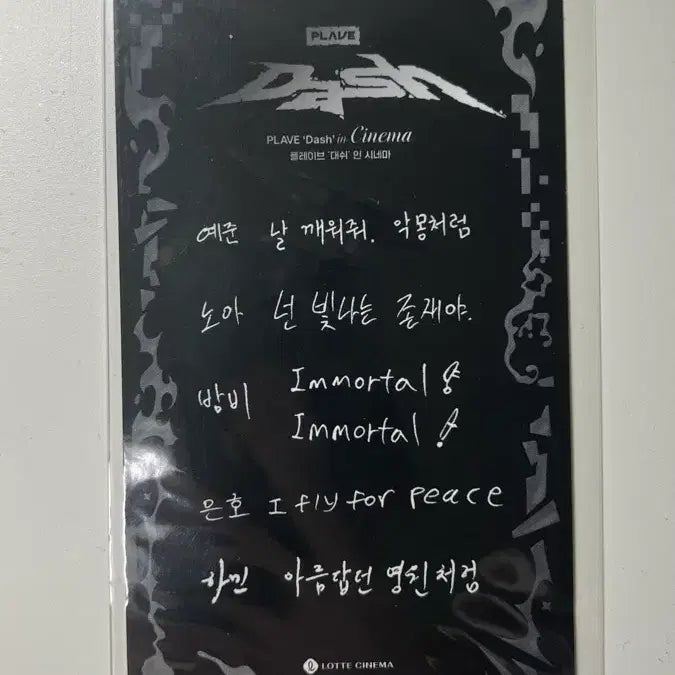 PLAVE
Dash
PLAVE 'Dash' in Cinema
플레이브 '대쉬' 인 시네마
예준 날 깨워줘. 악몽처럼
노아 넌 빛나는 존재야.
밤비 Immortal!
Immortal!
은호 I fly for peace
하민 아름답던 영원처럼
LOTTE CINEMA